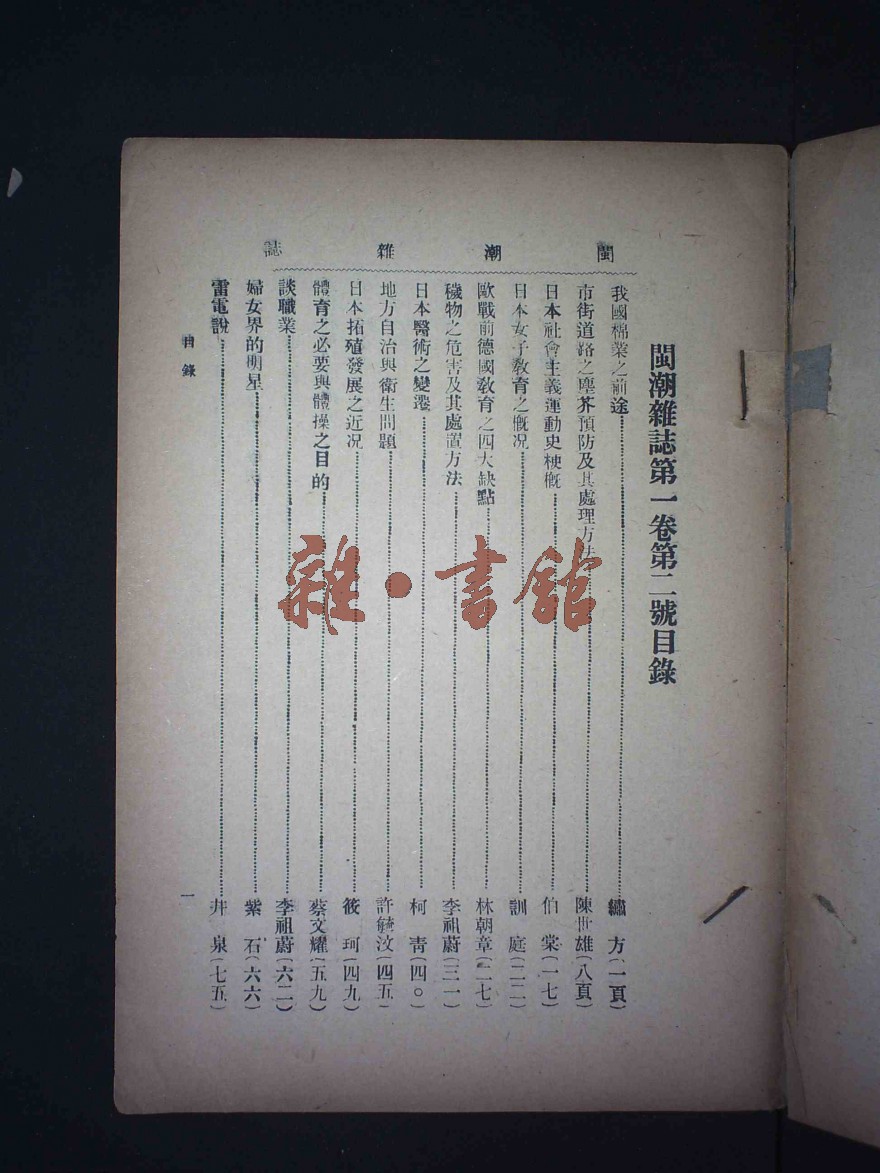 閩潮雜誌第一卷第二號目錄
閩潮雜誌
我國棉業之前途 繡方(一頁)
市街道路之塵芥預防及其處理方法 陳世雄(八頁)
日本社會主義運動史梗概 伯棠(一七)
日本女子教育之概况 訓庭(二二)
歐戰前德國敎育之四大缺點 林朝章(二七)
穢物之危害及其處置方法 李祖蔚(三一)
日本醫術之變遷 柯青(四〇)
地方自治與衛生問題 許毓汶(四五)
日本拓殖發展之近况 筱珂(四九)
體育之必要與體操之目的 蔡文耀(五九)
談職業 李祖蔚(六二)
婦女界的明星 紫石(六六)
雷電說 井泉(七五)
目錄
一
雜·書館